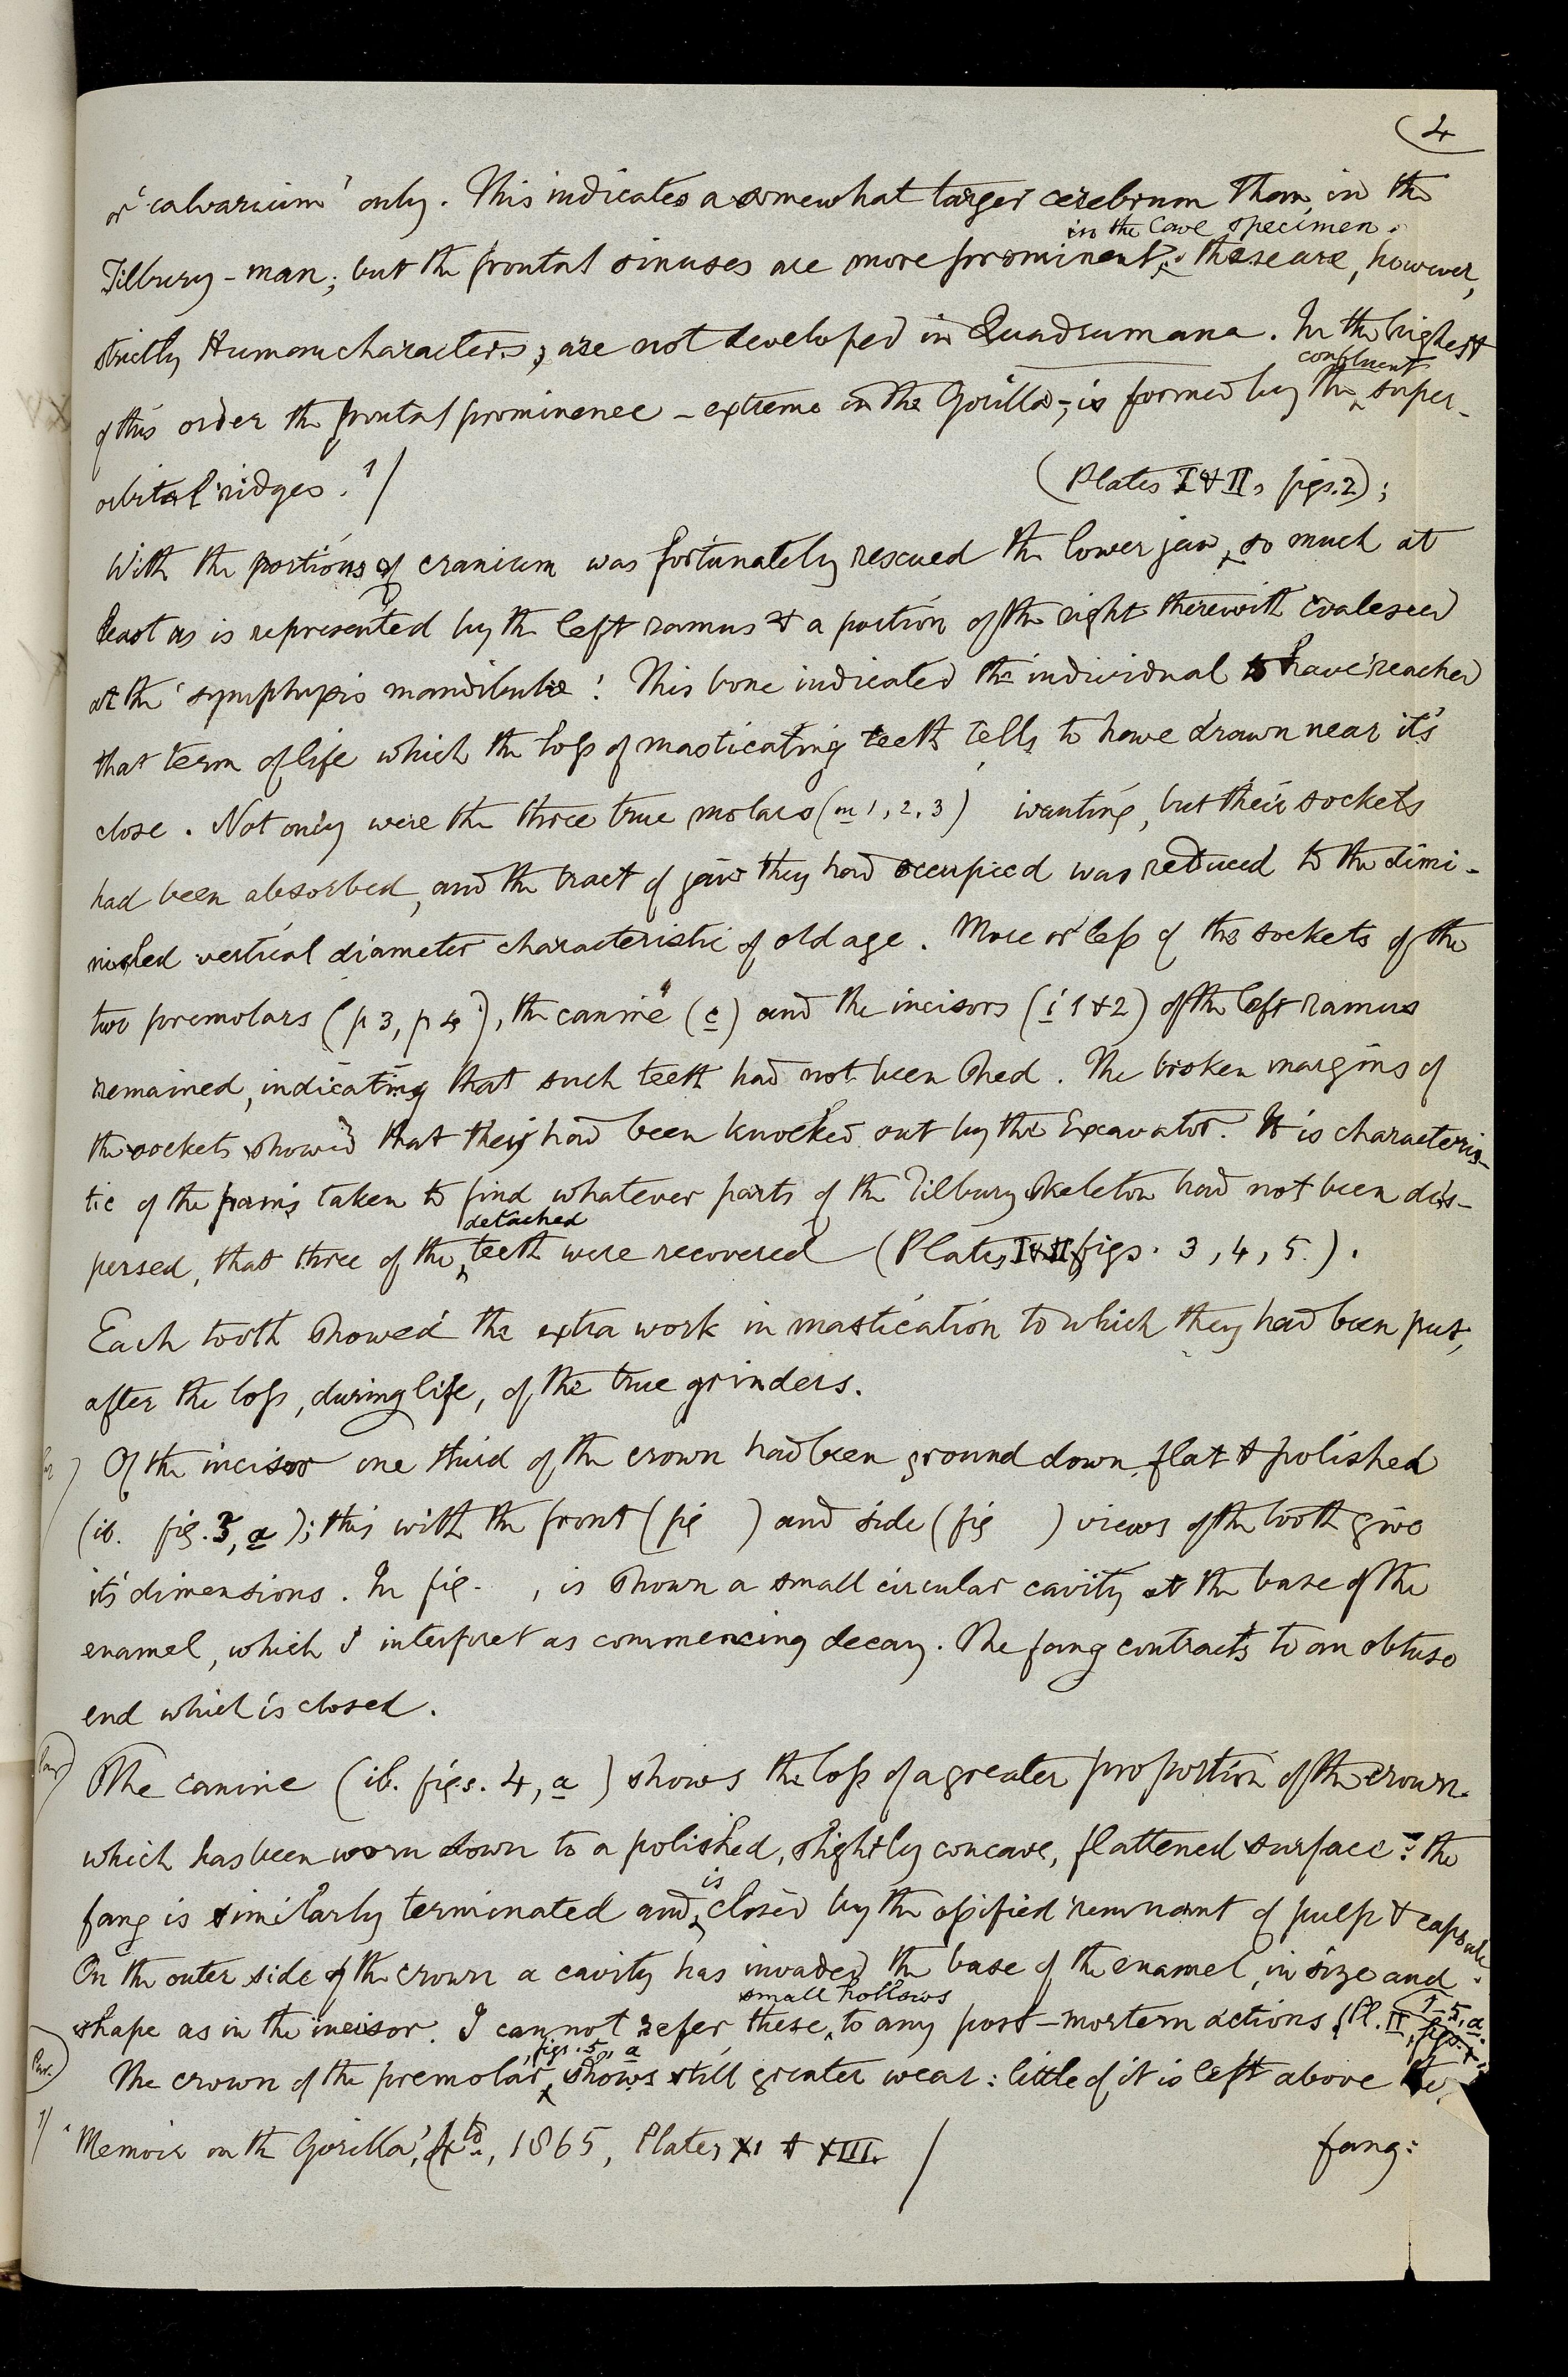 4
or 'calvarium' only. This indicates a somewhat larger cerebrum than in the
in the Cave specimen.
Tilbury-man; but the frontal sinuses are more prominent: these are, however,
strictly Human characters, are not developed in Quadrumana. In the highest
confluent
of this order the frontal prominence - extreme in the Gorilla -, is formed by the super-
orbital ridges. 1/
(Plates I & II, figs. 2);
With the portions of cranium was fortunately rescued the lower jaw, so much at
least as is represented by the left ramus & a portion of the right therewith coalesced
at the 'symphysis mandibulæ'. This bone indicated the individual to have reached
that term of life which the loss of masticating teeth tells to have drawn near it's
close. Not only were the three true molars (m 1, 2, 3) wanting, but their sockets
had been absorbed, and the tract of jaw they had occupied was reduced to the dimi-
nished vertical diameter characteristic of old age. More or less of the sockets of the
two premolars (p 3, p 4), the canine (c) and the incisors (i 1 & 2) of the left ramus
remained, indicating that such teeth had not been shed. The broken margins of
the sockets showed that they had been knocked out by the Excavator. It is characteris-
tic of the pains taken to find whatever parts of the Tilbury Skeleton had not been dis-
detached
persed, that three of the teeth were recovered (Plates I & II, figs. 3, 4, 5.).
Each tooth showed the extra work in mastication to which they had been put,
after the loss, during life, of the true grinders.
Of the incisor one third of the crown had been ground down flat & polished
(ib. fig. 3, a); this with the front (fig ) and side (fig ) views of the tooth give
its' dimensions. In fig. , is shown a small circular cavity at the base of the
enamel, which I interpret as commencing decay. The fang contracts to an obtuse
end which is closed.
Par
The canine (ib. figs. 4, a) shows the loss of a greater proportion of the crown
which has been worn down to a polished, slightly concave, flattened surface: the
is
fang is similarly terminated and closed by the ossified remnant of pulp & capsule.
On the outer side of the crown a cavity has invaded the base of the enamel, in size and
small hollows
shape as in the incisor. I cannot refer these to any post-mortem actions (Pl. II,
figs. 5, a
Par.
The crown of the premolar shows still greater wear: little of it is left above the
1/ 'Memoir on the Gorilla', 4to., 1865, Plates XI & XIII. /
fang: